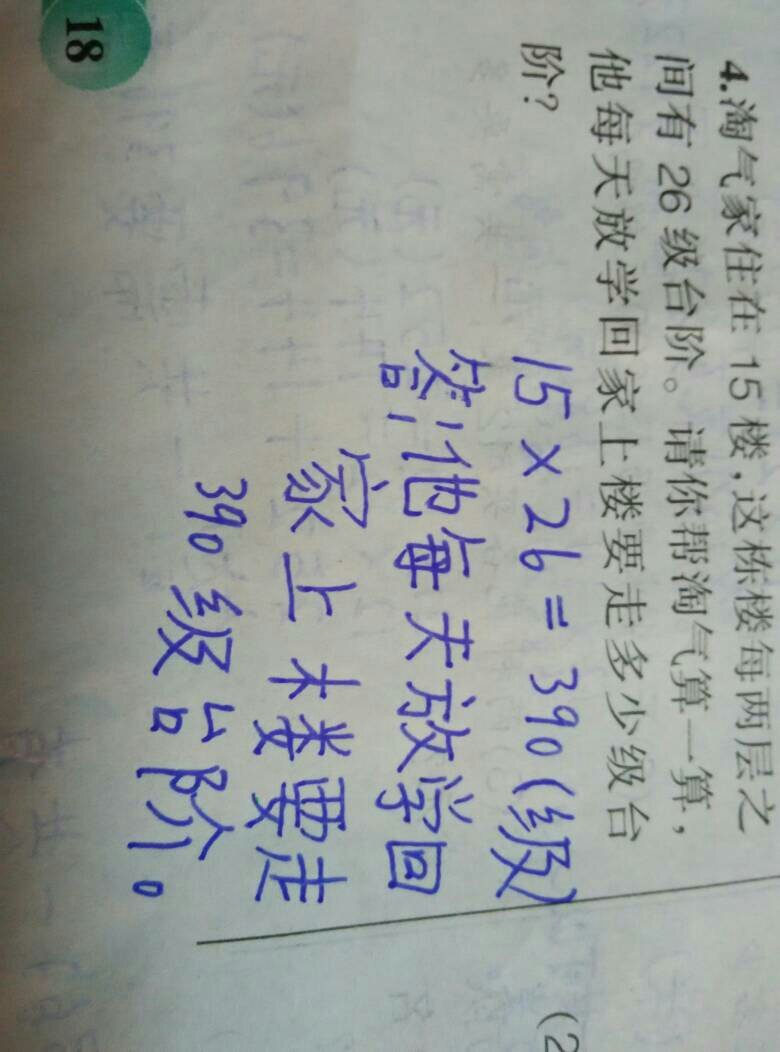 4.淘气家住在 15 楼,这栋楼每两层之
间有 26 级台阶。请你帮淘气算一算,
他每天放学回家上楼要走多少级台
阶?
15×26=390(级)
答:他每天放学回
家上楼要走
390级台阶。
18
(2